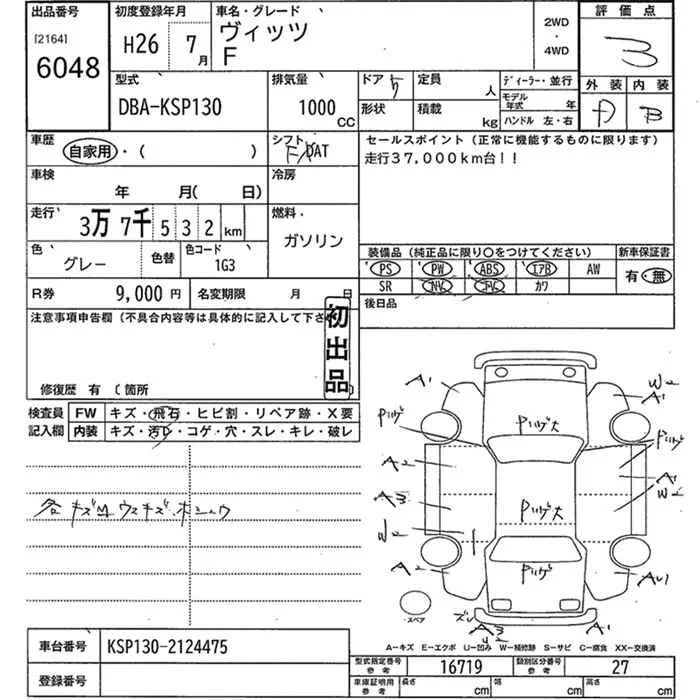 出品番号 初度登録年月 車名・グレード 2WD・4WD 評価点
[2164] 6048
H26 7月
ヴィッツ
F
3
外装 内装
A B
型式 排気量 ドア 定員 人 ディーラー・並行
DBA-KSP130 1000CC
形状 積載 kg
モデル年式 年
ハンドル 左・右
車歴 シフト セールスポイント(正常に機能するものに限ります)
自家用・( ) AT 走行37,000km台!!
車検 冷房
年 月( 日)
走行 燃料
3万7千532 km ガソリン
色 色替 色コード
グレー 1G3
装備品(純正品に限り○をつけてください) 新車保証書
PS PW ABS エアB AW 有・無
SR NV TV カワ
R券 9,000円 名変期限 月 日 後日品
注意事項申告欄(不具合内容等は具体的に記入して下さ
初出品
修復歴 有 〔箇所
検査員 FW キズ・飛石・ヒビ割・リペア跡・X要
記入欄 内装 キズ・汚レ・コゲ・穴・スレ・キレ・破レ
A1 W2 A1
Pリケ゛ Pリケ゛大
A2 A1
A3 W2 Pリケ゛大
W2
A2 Pリケ゛ AU1
スペア
A3 A1
A-キズ E-エクボ U-凹み W-補修跡 S-サビ C-腐食 XX-交換済
車台番号 KSP130-2124475
型式指定番号 参考 16719 類別区分番号 参考 27
登録番号
車庫証明用 参考 長さ cm 幅 cm 高さ cm